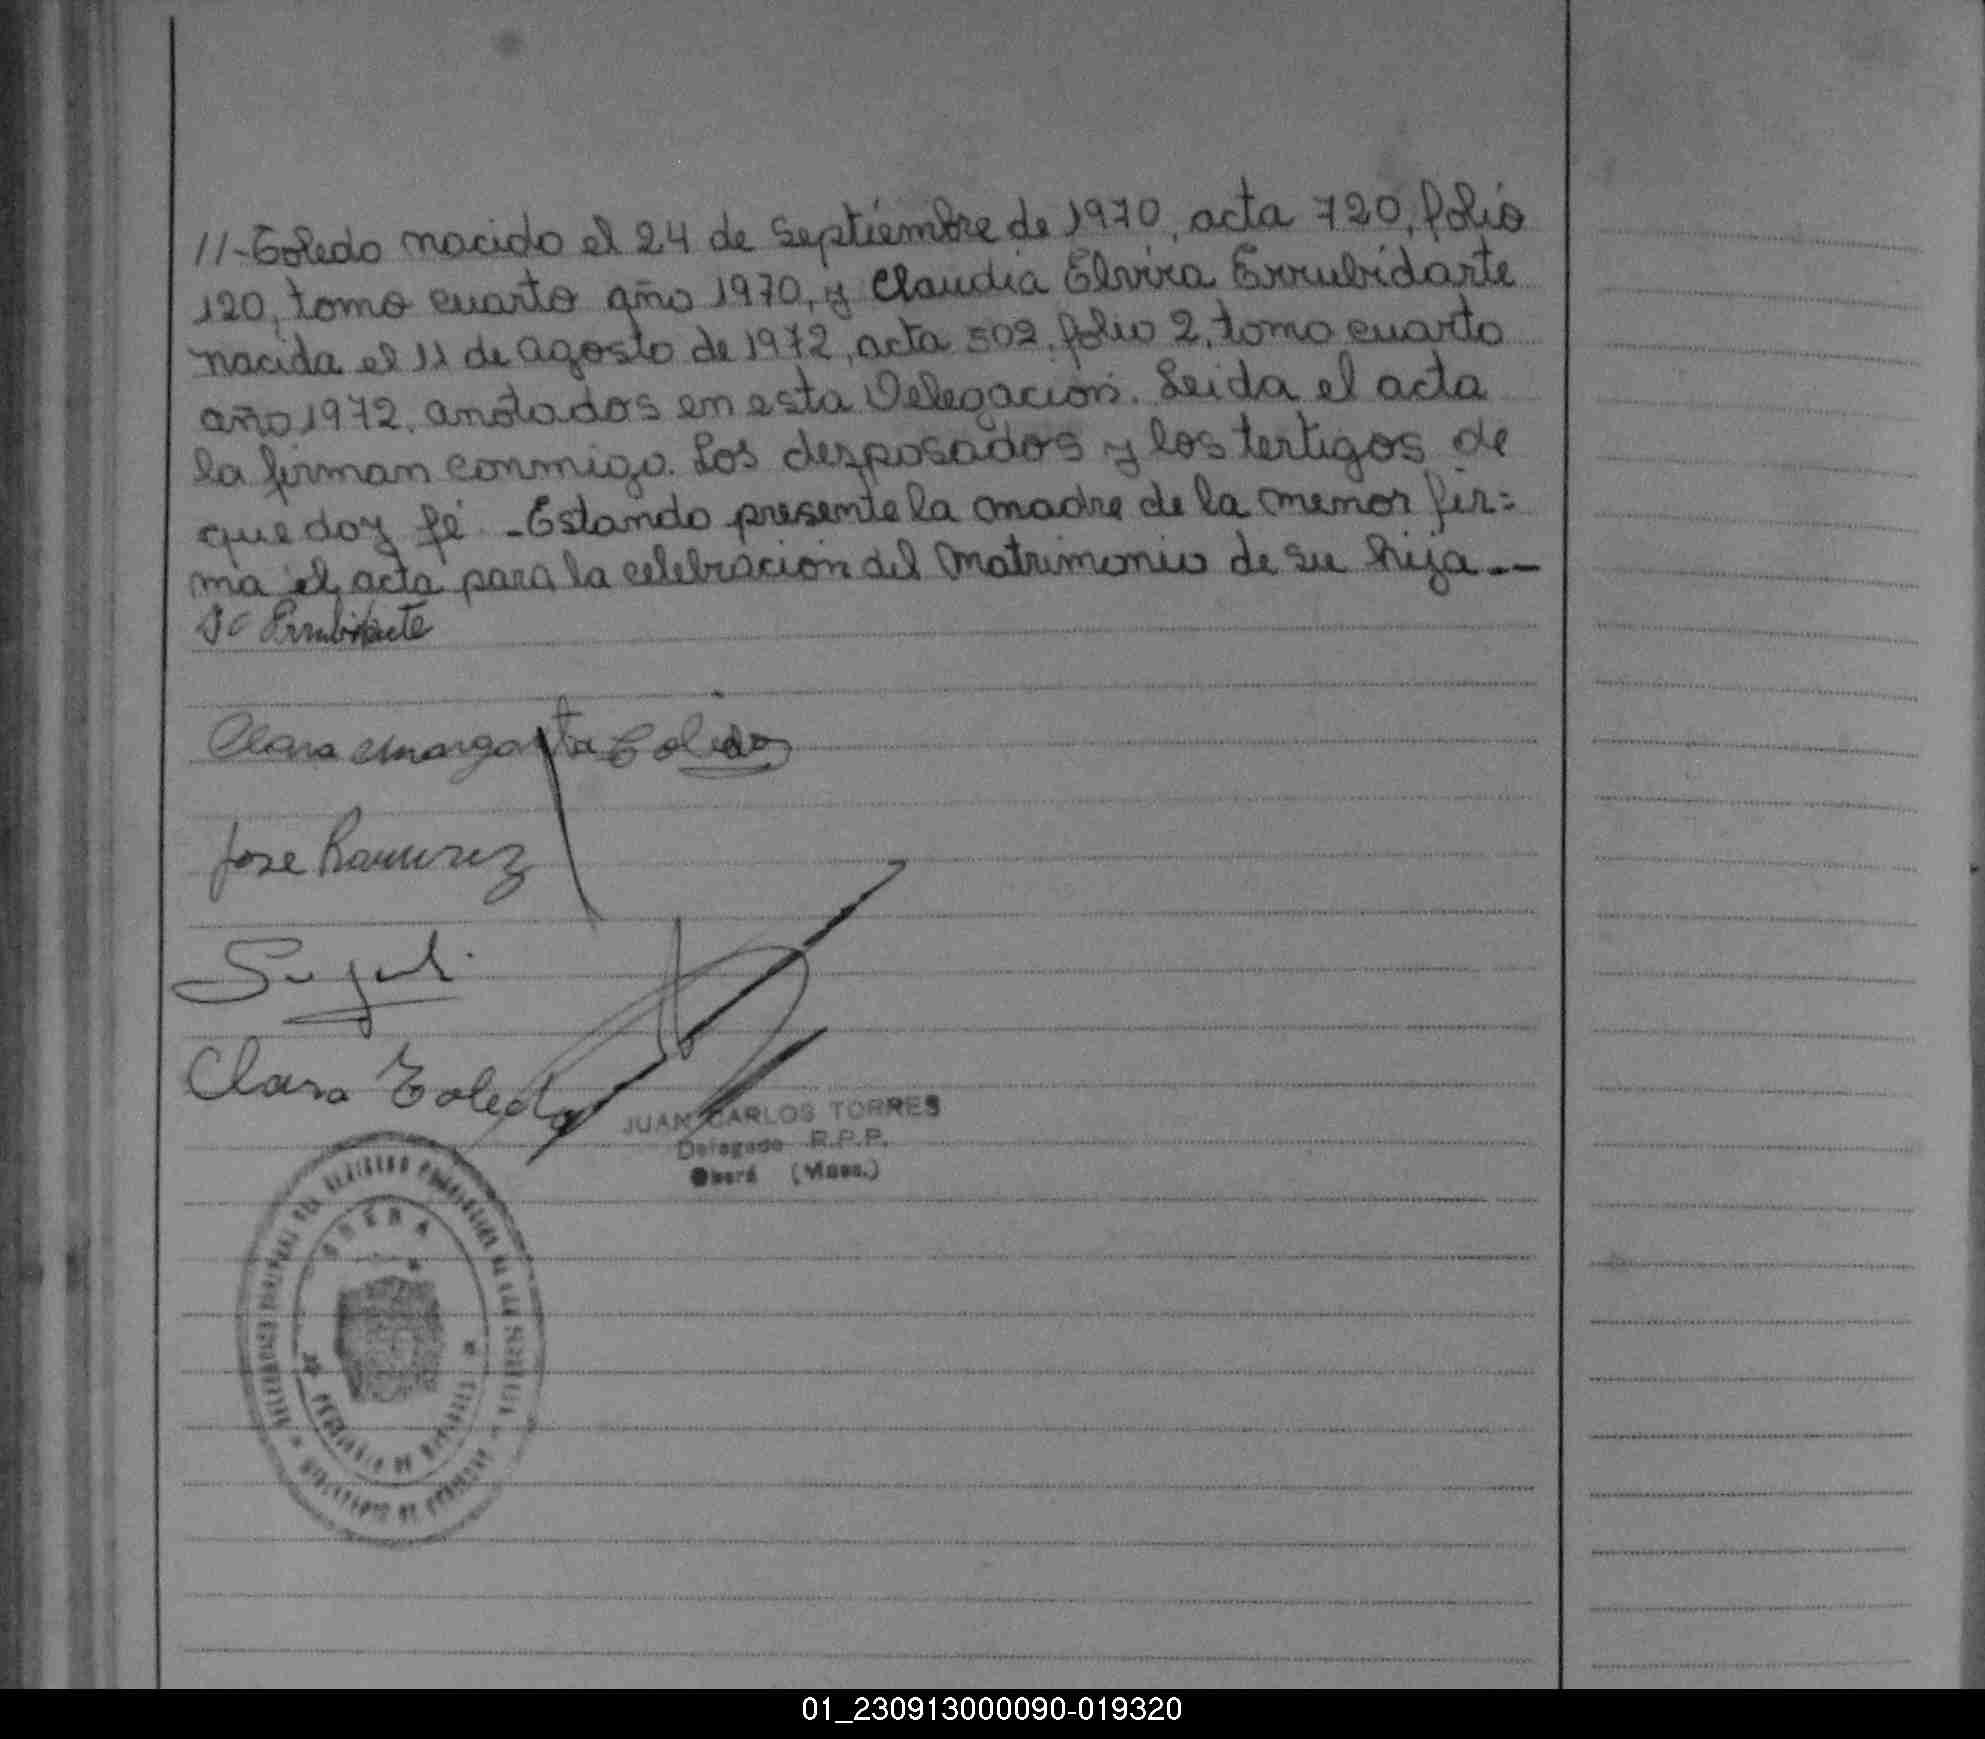 11-Toledo nacido el 24 de Septiembre de 1970, acta 720, folio
120, tomo cuarto año 1970, y Claudia Elvira Errubidarte
nacida el 11 de agosto de 1972, acta 502, folio 2, tomo cuarto
año 1972, anotados en esta Delegación. Leida el acta
la firman conmigo. Los desposados y los tertigos de
que doy fé -Estando presente la madre de la menor fir=
ma el acta para la celebración del Matrimonio de su hija--
Clara Margarita Toledo
Jose Ramirez
Clara Toledo
JUAN CARLOS TORRES
Delegado R.P.P.
Oberá (Mnes.)
OBERA
PROVINCIA DE MISIONES
01_230913000090-019320